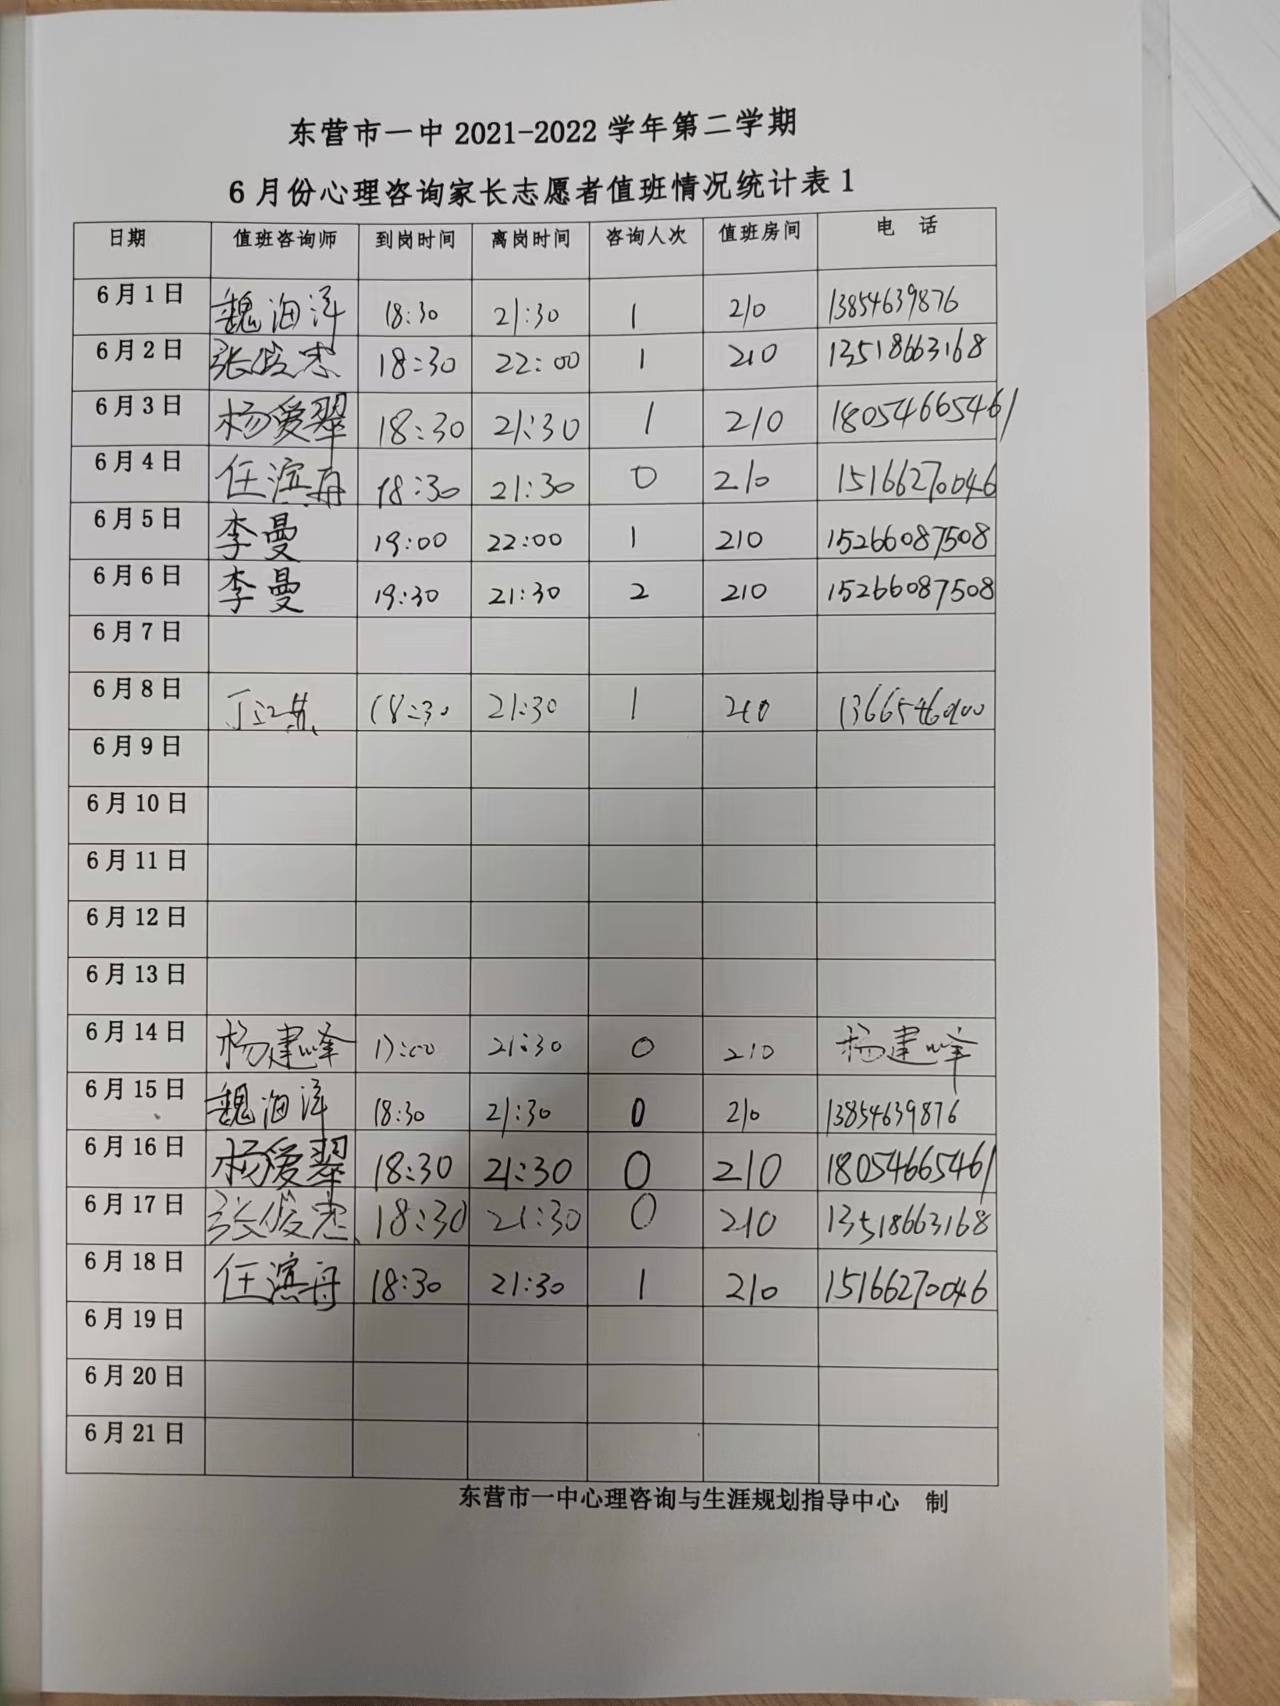 东营市一中 2021-2022 学年第二学期
6 月份心理咨询家长志愿者值班情况统计表 1
日期 值班咨询师 到岗时间 离岗时间 咨询人次 值班房间 电 话
6 月 1 日 魏海洋 18:30 21:30 1 210 13854639876
6 月 2 日 张俊忠 18:30 22:00 1 210 13518663168
6 月 3 日 杨爱翠 18:30 21:30 1 210 18054665461
6 月 4 日 任滨丹 18:30 21:30 0 210 15166270046
6 月 5 日 李曼 19:00 22:00 1 210 15266087508
6 月 6 日 李曼 19:30 21:30 2 210 15266087508
6 月 7 日
6 月 8 日 18:30 21:30 1 210
6 月 9 日
6 月 10 日
6 月 11 日
6 月 12 日
6 月 13 日
6 月 14 日 杨建峰 17:00 21:30 0 210 杨建峰
6 月 15 日 魏海洋 18:30 21:30 0 210 13854639876
6 月 16 日 杨爱翠 18:30 21:30 0 210 18054665461
6 月 17 日 张俊忠 18:30 21:30 0 210 13518663168
6 月 18 日 任滨丹 18:30 21:30 1 210 15166270046
6 月 19 日
6 月 20 日
6 月 21 日
东营市一中心理咨询与生涯规划指导中心 制